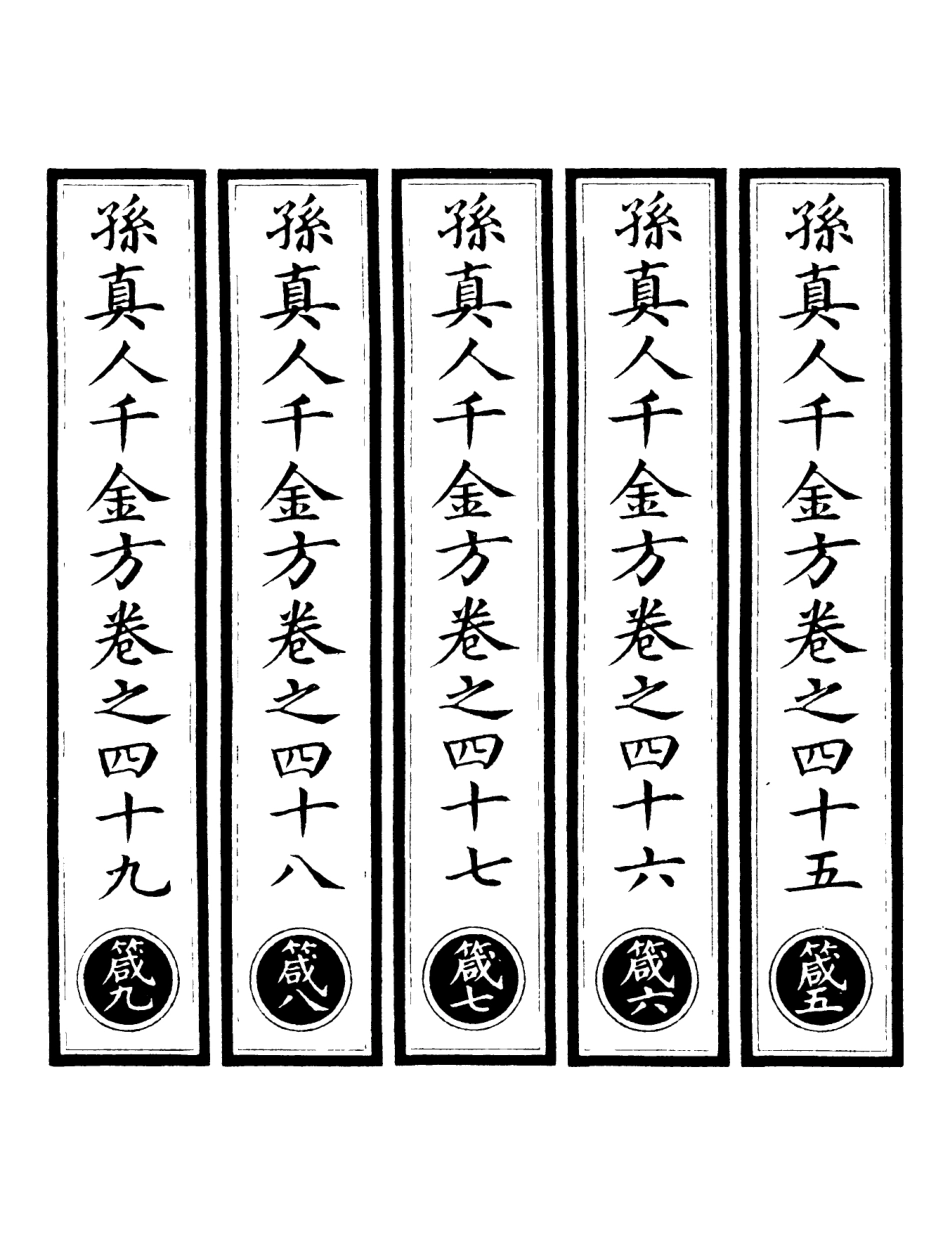 孫真人千金方卷之四十五
箴五
孫真人千金方卷之四十六
箴六
孫真人千金方卷之四十七
箴七
孫真人千金方卷之四十八
箴八
孫真人千金方卷之四十九
箴九